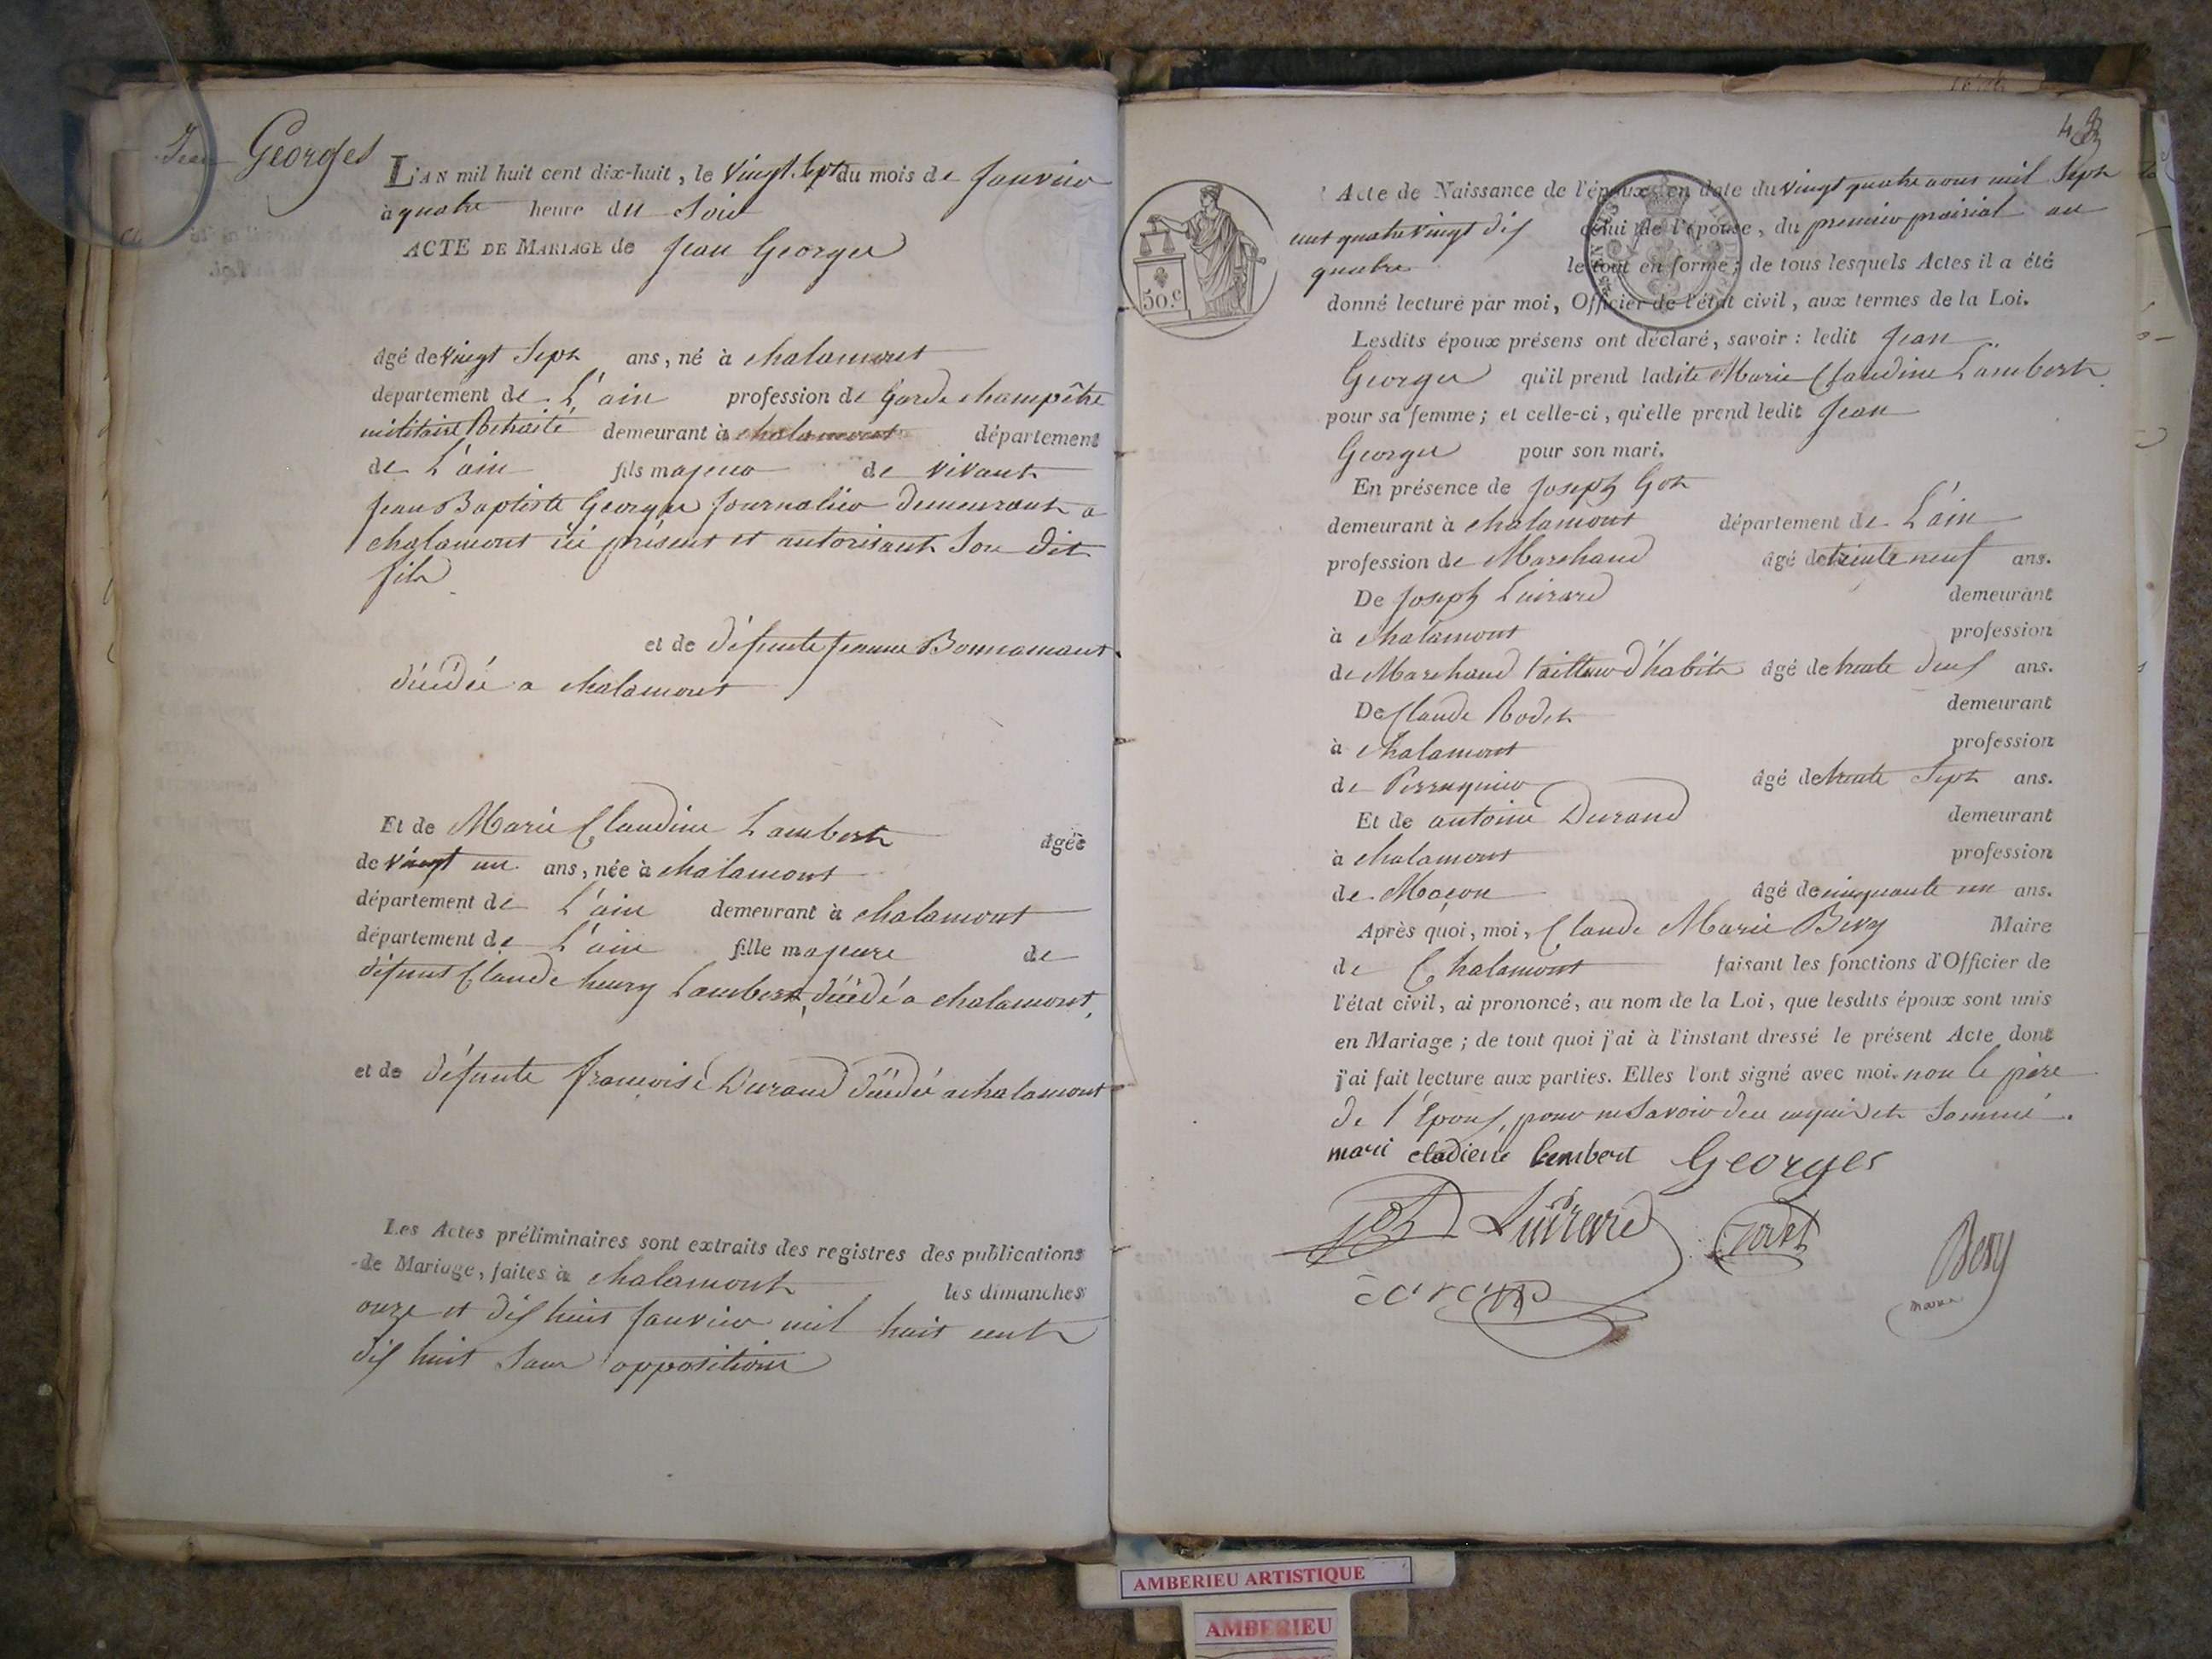 Jean Georges
L'AN mil huit cent dix-huit, le vingt sept du mois de Janvier
à quatre heure du Soir
ACTE DE MARIAGE de Jean Georges
âgé de vingt Sept ans, né à chalamont
département de L'ain profession de Garde champêtre
militaire Retraité demeurant à chalamont département
de L'ain fils majeur de vivant
Jean Baptiste Georges Journalier demeurant a
chalamont ici présent et autorisant Son dit
fils
et de défunte Jeanne Bonnamant
décédée a chalamont
Et de Marie Claudine Lambert âgée
de vingt un ans, née à chalamont
département de L'ain demeurant à chalamont
département de L'ain fille majeure de
défunt Claude henry Lambert, décédé a chalamont,
et de défunte françoise Durand décédée a chalamont
Les Actes préliminaires sont extraits des registres des publications
de Mariage, faites à chalamont les dimanches
onze et dix huit Janvier mil huit cent
dix huit Sans opposition
50.c
Acte de Naissance de l'époux en date du vingt quatre aout mil Sept
cent quatre vingt dix celui de l'épouse, du premier prairial an
quatre le tout en forme; de tous lesquels Actes il a été
donné lecture par moi, Officier de l'état civil, aux termes de la Loi.
Lesdits époux présens ont déclaré, savoir : ledit Jean
Georges qu'il prend ladite Marie Claudine Lambert
pour sa femme; et celle-ci, qu'elle prend ledit Jean
Georges pour son mari.
En présence de Joseph Got
demeurant à chalamont département de L'ain
profession de Marchand âgé de trente neuf ans.
De Joseph Luirard demeurant
à chalamont profession
de Marchand tailleur d'habits âgé de trente deux ans.
De Claude Rodet demeurant
à chalamont profession
de Perruquier âgé de trente Sept ans.
Et de antoine Durand demeurant
à chalamont profession
de Maçon âgé de cinquante un ans.
Après quoi, moi, Claude Marie Bevy Maire
de Chalamont faisant les fonctions d'Officier de
l'état civil, ai prononcé, au nom de la Loi, que lesdits époux sont unis
en Mariage; de tout quoi j'ai à l'instant dressé le présent Acte dont
j'ai fait lecture aux parties. Elles l'ont signé avec moi. non le père
de l'Epoux, pour ne Savoir de ce enquis et Sommé.
mari cladiene lembert Georges
Got Luirard Rodet
Bevy
maire
AMBERIEU ARTISTIQUE
AMBERIEU